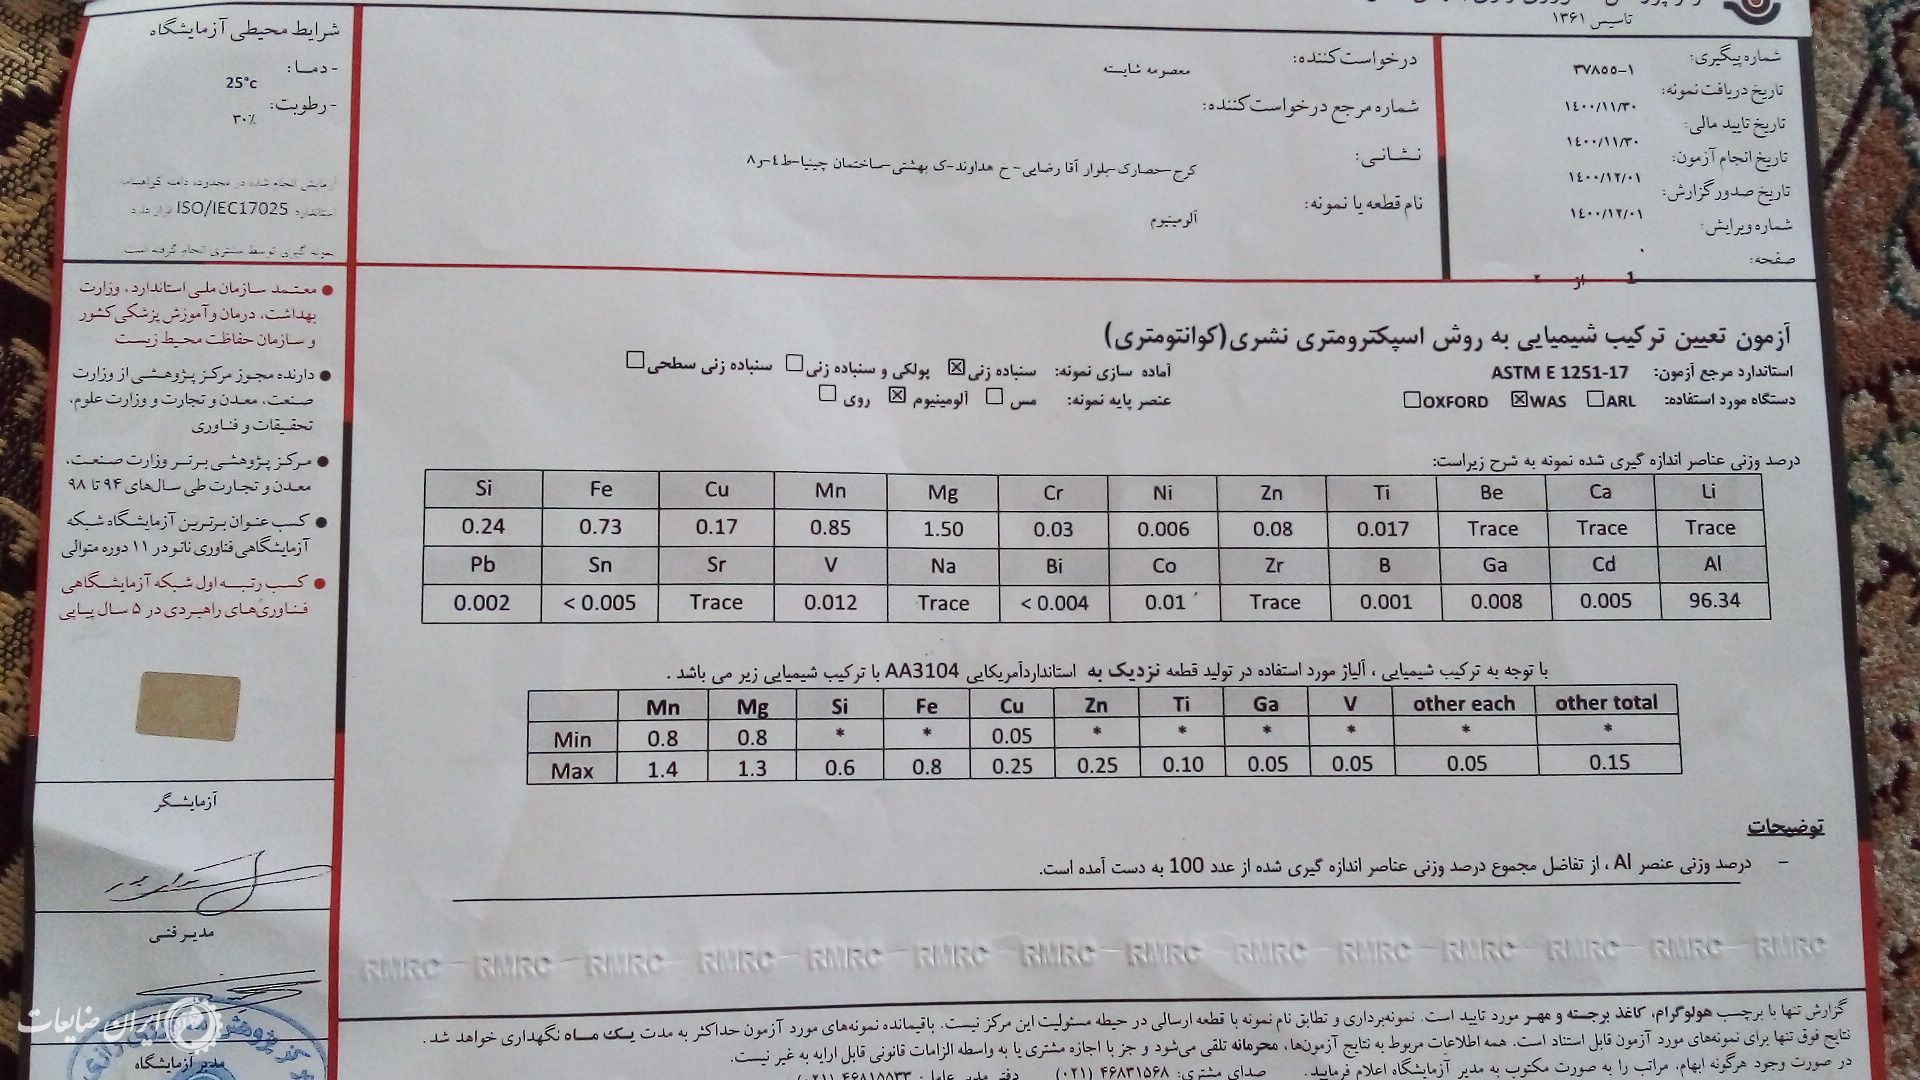 تاسیس ۱۳۶۱
شماره پیگیری: ۳۷۸۵۵-۱
تاریخ دریافت نمونه: ۱۴۰۰/۱۱/۳۰
تاریخ تایید مالی: ۱۴۰۰/۱۱/۳۰
تاریخ انجام آزمون: ۱۴۰۰/۱۲/۰۱
تاریخ صدور گزارش: ۱۴۰۰/۱۲/۰۱
شماره ویرایش: ۰
صفحه: 1 از ۲
درخواست کننده: معصومه شایسته
شماره مرجع درخواست کننده:
نشانی: کرج-حصارک-بلوار آقا رضایی- خ هداوند-ک بهشتی-ساختمان چینیا-ط٤-و۸
نام قطعه یا نمونه: آلومینیوم
شرایط محیطی آزمایشگاه
- دما: 25°c
- رطوبت: ۳۰٪
آزمایش انجام شده در محدوده دامنه گواهینامه
استاندارد ISO/IEC17025 قرار دارد
نمونه گیری توسط مشتری انجام گرفته است
آزمون تعیین ترکیب شیمیایی به روش اسپکترومتری نشری(کوانتومتری)
استاندارد مرجع آزمون: ASTM E 1251-17
آماده سازی نمونه: سنباده زنی☒ پولکی و سنباده زنی☐ سنباده زنی سطحی☐
دستگاه مورد استفاده: ☐ARL ☒WAS ☐OXFORD
عنصر پایه نمونه: مس ☐ آلومینیوم ☒ روی ☐
درصد وزنی عناصر اندازه گیری شده نمونه به شرح زیراست:
Si Fe Cu Mn Mg Cr Ni Zn Ti Be Ca Li
0.24 0.73 0.17 0.85 1.50 0.03 0.006 0.08 0.017 Trace Trace Trace
Pb Sn Sr V Na Bi Co Zr B Ga Cd Al
0.002 < 0.005 Trace 0.012 Trace < 0.004 0.01 Trace 0.001 0.008 0.005 96.34
با توجه به ترکیب شیمیایی ، آلیاژ مورد استفاده در تولید قطعه نزدیک به استانداردآمریکایی AA3104 با ترکیب شیمیایی زیر می باشد .
Mn Mg Si Fe Cu Zn Ti Ga V other each other total
Min 0.8 0.8 * * 0.05 * * * * * *
Max 1.4 1.3 0.6 0.8 0.25 0.25 0.10 0.05 0.05 0.05 0.15
توضیحات
- درصد وزنی عنصر Al ، از تفاضل مجموع درصد وزنی عناصر اندازه گیری شده از عدد 100 به دست آمده است.
RMRC RMRC RMRC RMRC RMRC RMRC RMRC RMRC RMRC RMRC RMRC RMRC RMRC RMRC
گزارش تنها با برچسب هولوگرام، کاغذ برجسته و مهر مورد تایید است. نمونه‌برداری و تطابق نام نمونه با قطعه ارسالی در حیطه مسئولیت این مرکز نیست. باقیمانده نمونه‌های مورد آزمون حداکثر به مدت یک ماه نگهداری خواهد شد .
نتایج فوق تنها برای نمونه‌های مورد آزمون قابل استناد است. همه اطلاعات مربوط به نتایج آزمون‌ها، محرمانه تلقی می‌شود و جز با اجازه مشتری یا به واسطه الزامات قانونی قابل ارایه به غیر نیست.
در صورت وجود هرگونه ابهام، مراتب را به صورت مکتوب به مدیر آزمایشگاه اعلام فرمایید. صدای مشتری: ۴۶۸۳۱۵۶۸ (۰۲۱) دفتر مدیر عامل: ۴۶۸۱۵۵۳۳ (۰۲۱)
● معتمد سازمان ملی استاندارد، وزارت
بهداشت، درمان و آموزش پزشکی کشور
و سازمان حفاظت محیط زیست
● دارنده مجوز مرکز پژوهشی از وزارت
صنعت، معدن و تجارت و وزارت علوم،
تحقیقات و فناوری
● مرکز پژوهشی برتر وزارت صنعت،
معدن و تجارت طی سال‌های ۹۴ تا ۹۸
● کسب عنوان برترین آزمایشگاه شبکه
آزمایشگاهی فناوری نانو در ۱۱ دوره متوالی
● کسب رتبه اول شبکه آزمایشگاهی
فناوری‌های راهبردی در ۵ سال پیاپی
آزمایشگر
مدیر فنی
مدیر آزمایشگاه
ایران ضایعات